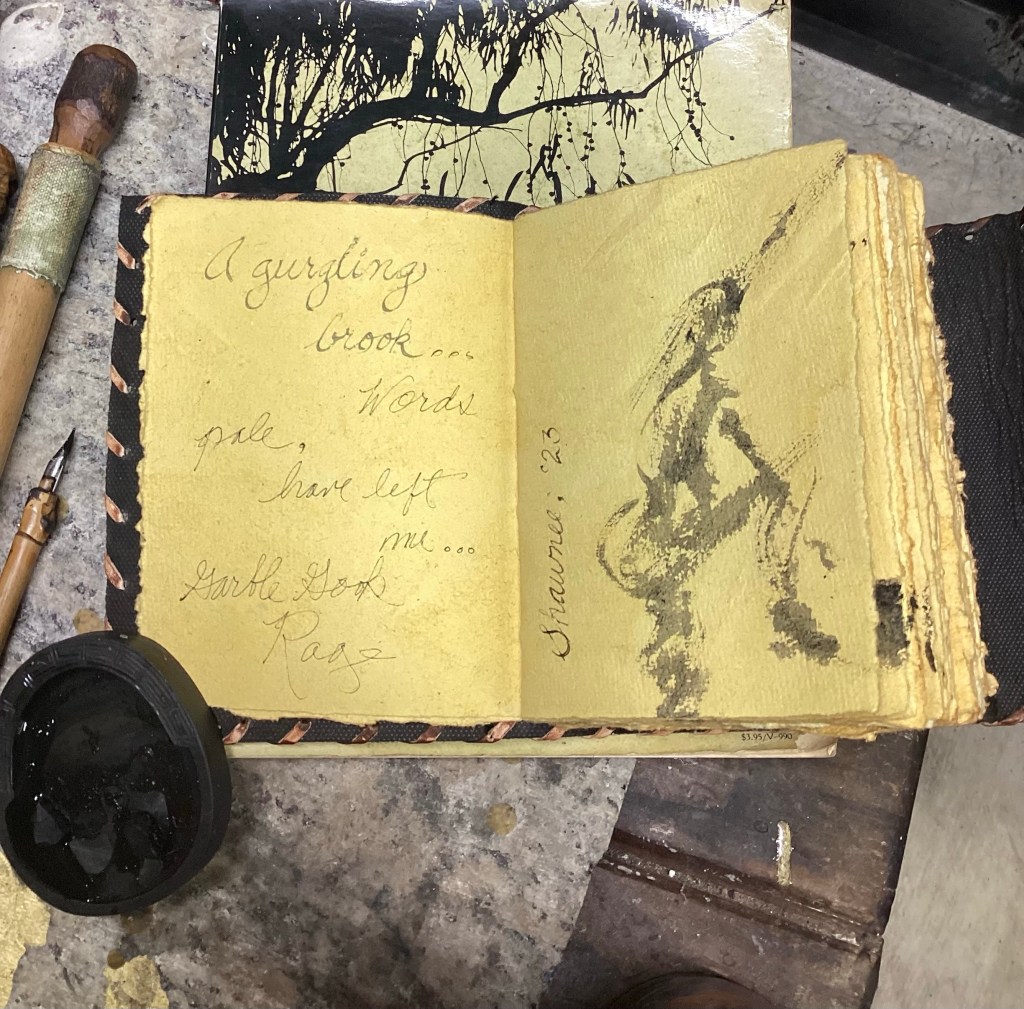 A gurgling
brook...
Words
pale,
have left
me...
Garble Gook
Rage
Shawnee, '23
$3.95/V-990